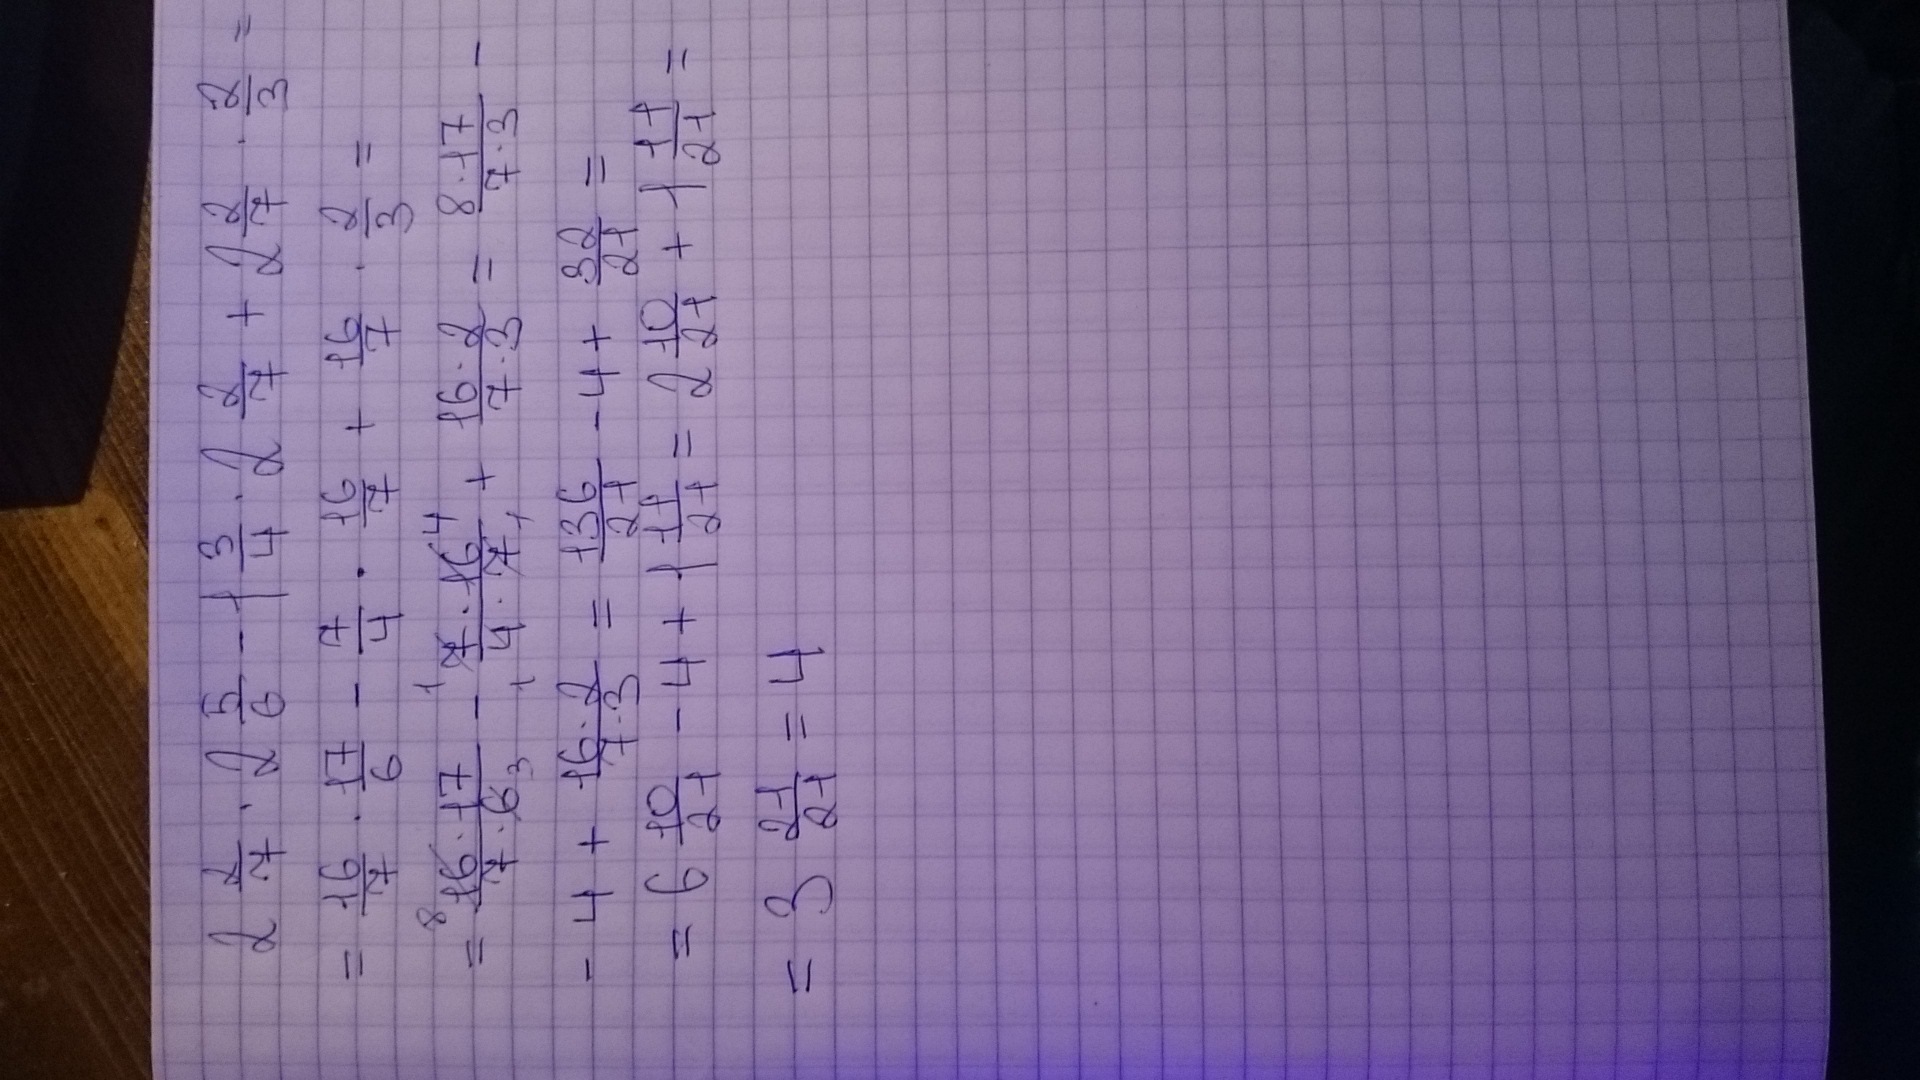 2 2/7 · 2 5/6 - 1 3/4 · 2 2/7 + 2 2/7 · 2/3 =
= 16/7 · 17/6 - 7/4 · 16/7 + 16/7 · 2/3 =
= 8 16·17/7·6 3 - 1 7·16 4/1 4·7 1 + 16·2/7·3 = 8·17/7·3 -
- 4 + 16·2/7·3 = 136/21 - 4 + 32/21 =
= 6 10/21 - 4 + 1 11/21 = 2 10/21 + 1 11/21 =
= 3 21/21 = 4